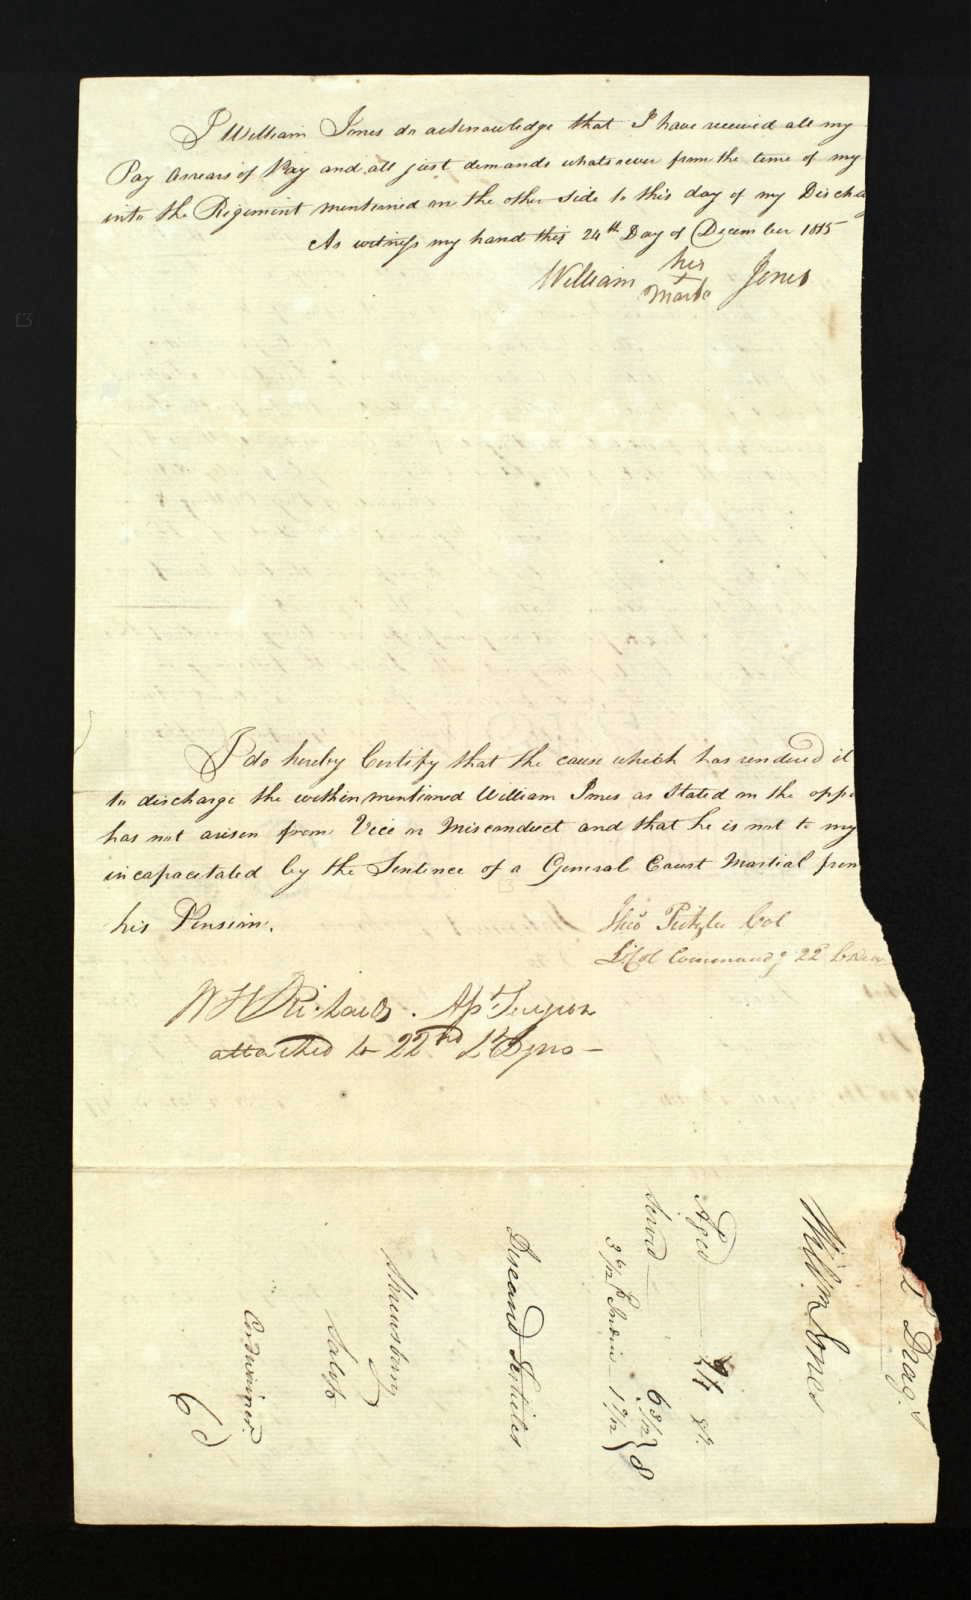 I William Jones do acknowledge that I have received all my
Pay Arrears of Pay and all just demands whatsoever from the time of my
into the Regiment mentioned on the other side to this day of my Discha
As witness my hand this 24th Day of December 1815
William his Jones
x
Mark
I do hereby Certify that the cause which has rendered it
to discharge the within mentioned William Jones as Stated on the oppo
has not arisen from Vice or Misconduct and that he is not to my
incapacetated by the Sentence of a General Court Martial from
his Pension.
Col
Lt Col Commandg 22d
W H Richards. Ast Surgeon
attached to 22nd Lt Dgns
Lt Drags
Willm Jones
Aged 24 8/12
Served 6 3/12 } 8
3 6/12 in India 1 9/12 }
Diseased Testicles
Shrewsbury
Salop
Cordwainer
6d